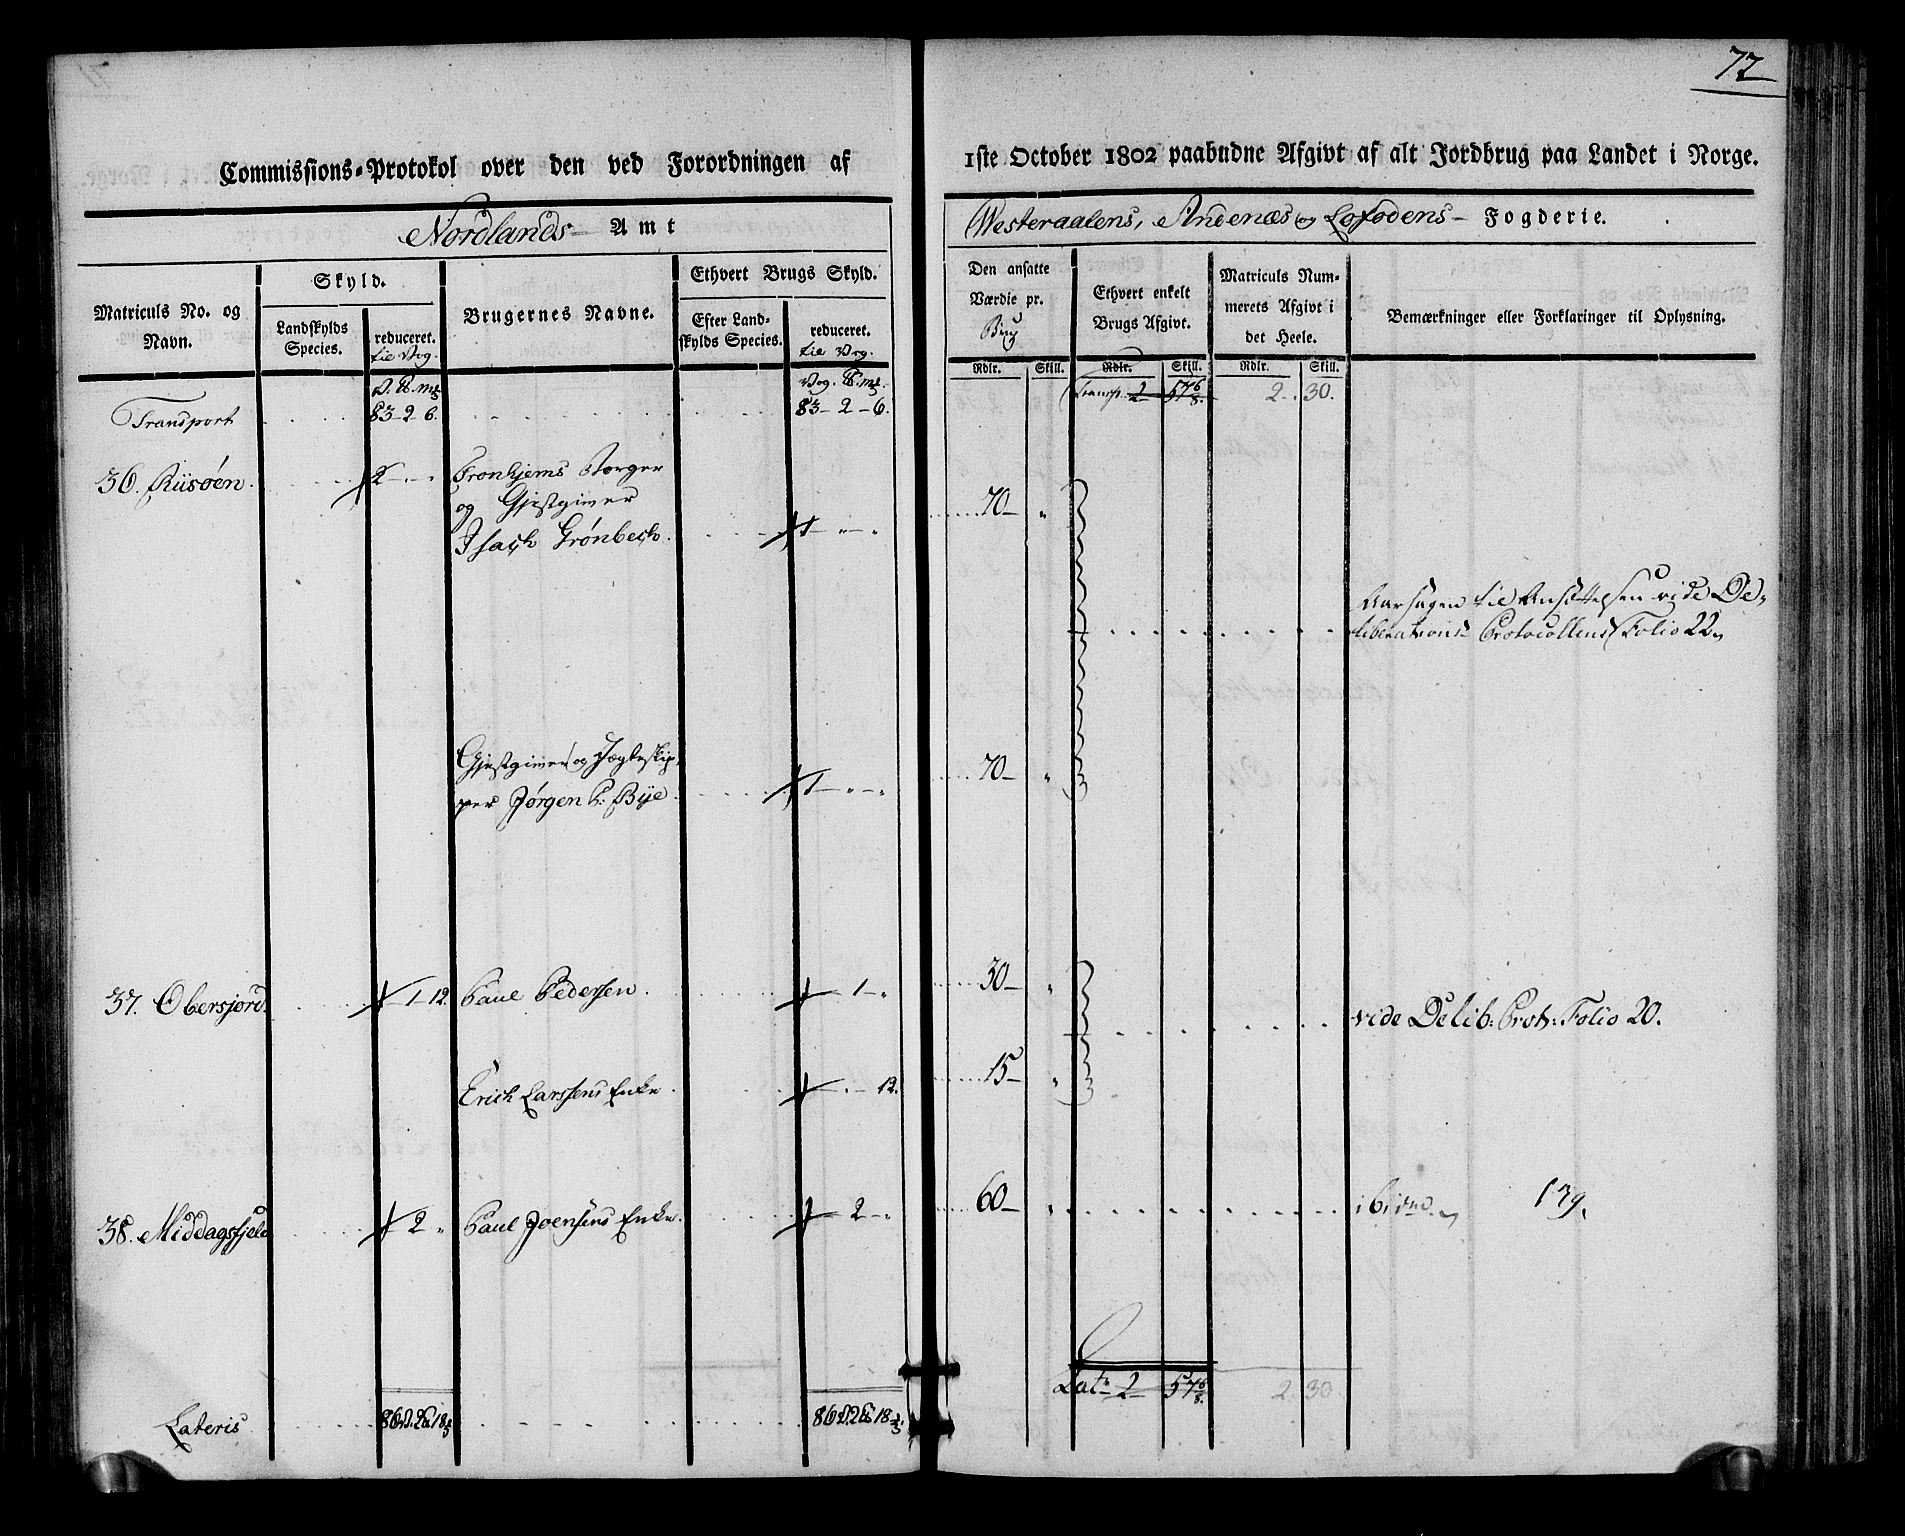 77
Commissions-Protokol over den ved Forordningen af
1ste October 1802 paabudne Afgivt af alt Jordbrug paa Landet i Norge.
Nordlands Amt
Westeraalens, Andenæs og Lofodens Fogderie.
Matriculs No. og
Navn.
Skyld.
Landskylds
Species.
reduceret.
til Vog.
Brugernes Navne.
Ethvert Brugs Skyld.
Efter Land-
skylds Species.
reduceret.
til Vog.
Den ansatte
Værdie pr.
Brug
Ethvert enkelt
Brugs Afgivt.
Matriculs Num-
merets Afgivt i
det Heele.
Bemærkninger eller Forklaringer til Oplysning.
Rdlr. Skill. Rdlr. Skill. Rdlr. Skill.
Transport 83-2 6. 83-2-6. Transp. 2 57 6/8. 2. 30.
36. Riisøen. 2 - " - " Tronhjems Borger
og Gjestgiver
Isach Grønbech. 1 - " - " 70 - "
Aarsagen til Ansættelsen vide De-
liberations Protocollens Folio 22,
Gjestgiver og Jægteskip-
per Jørgen P. Bye 1 - " - " 70 - "
37. Obersjord. 1-12. Paul Pedersen. 1 - " 30 - "
vide Delib: Prot: Folio 20.
Erich Larssens Enke. 12. 15 - "
38. Middagsfjeld 2 " Paul Joensens Enke. 2 - " 60 - " ibid. 139.
Lat. 2 57 6/8. 2. 30.
Lateris